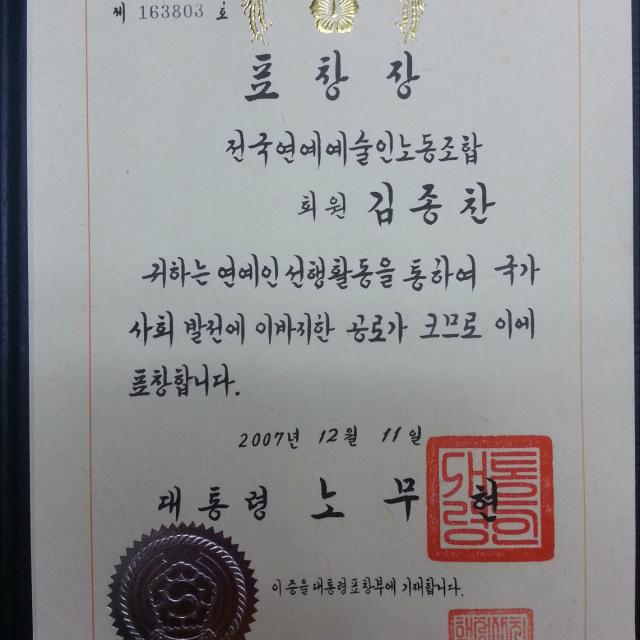 제 163803 호
표창장
전국연예예술인노동조합
회원 김종찬
귀하는 연예인 선행활동을 통하여 국가
사회 발전에 이바지한 공로가 크므로 이에
표창합니다.
2007년 12월 11일
대통령 노무현
이 증을 대통령표창부에 기재합니다.